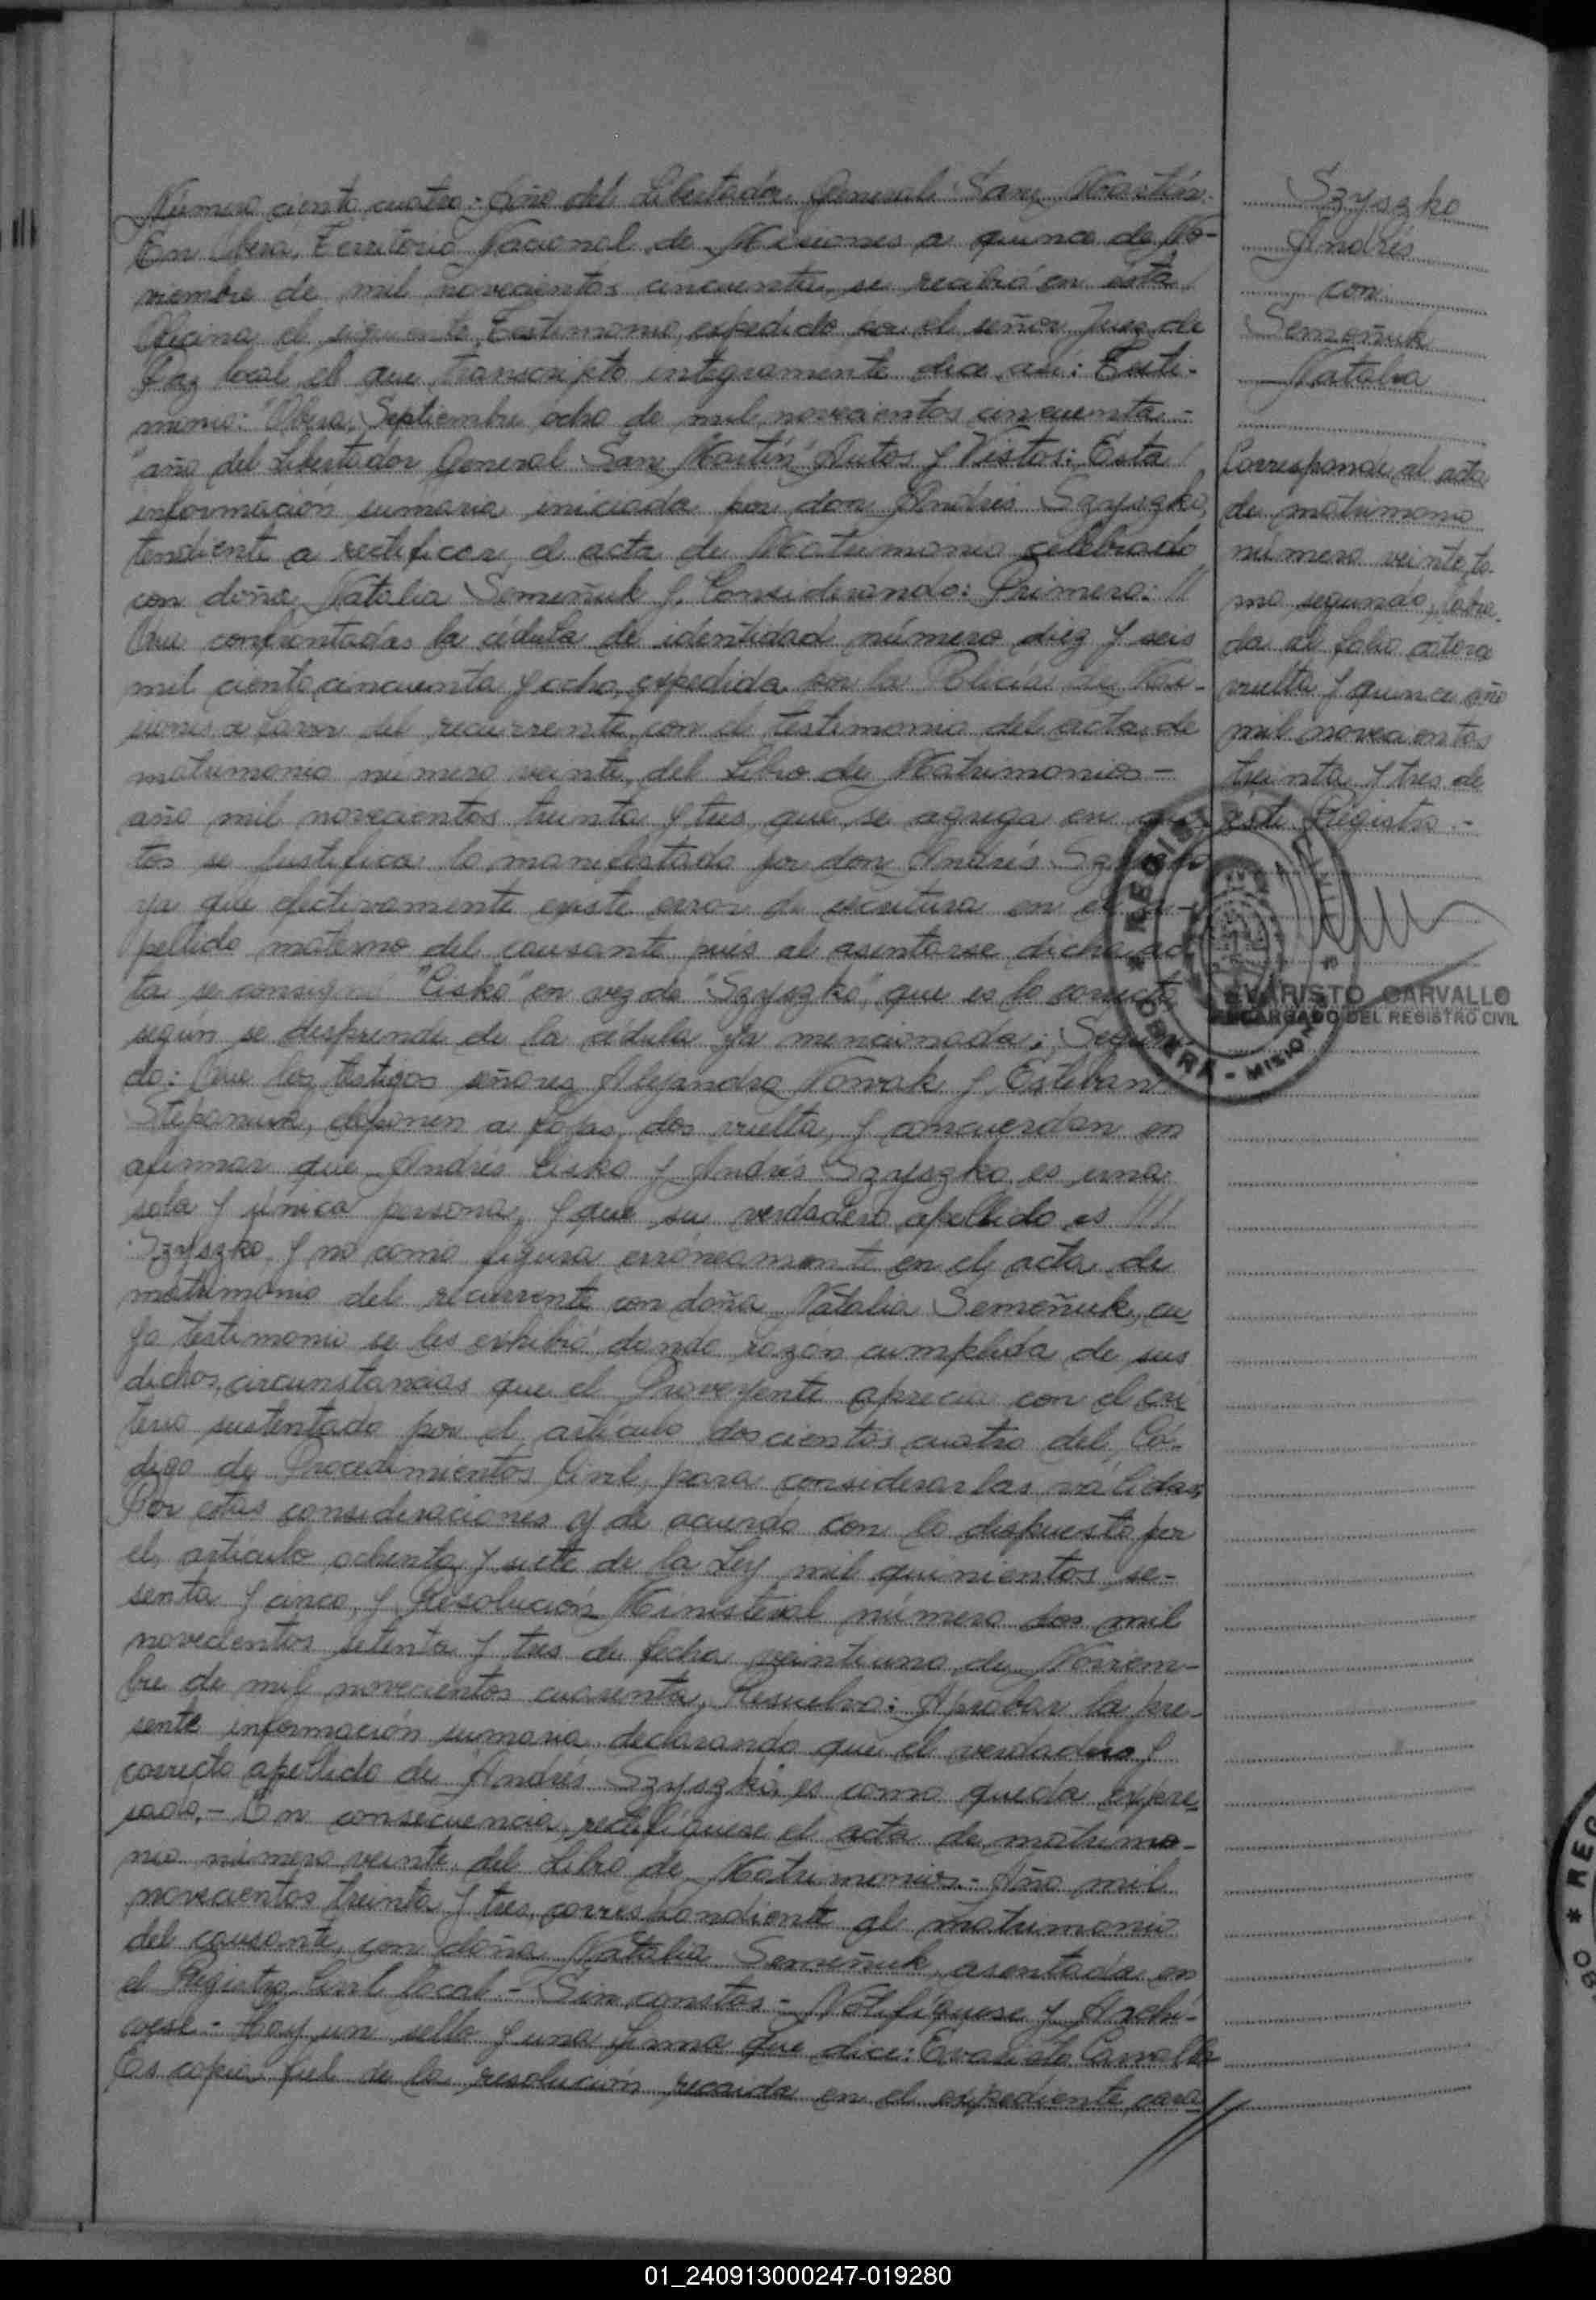 Número ciento cuatro - Año del Libertador General San Martín.
En Obera, Territorio Nacional de Misiones a quince de No-
viembre de mil novecientos cincuenta, se recibió en esta
Oficina el siguiente Testimonio, expedido por el señor Juez de
Paz local, el que transcripto integramente dice así: Testi-
monio: "Obera, Septiembre ocho de mil novecientos cincuenta -
"año del Libertador General San Martín" Autos y Vistos: Esta
información sumaria iniciada por don Andrés Szyszko,
tendiente a rectificar el acta de Matrimonio celebrado
con doña Natalia Semeñuk y Considerando: Primero: //
Que confrontadas la cédula de identidad número diez y seis
mil ciento cincuenta y ocho, expedida por la Policía de Mi-
siones a favor del recurrente, con el testimonio del acta de
matrimonio número veinte, del Libro de Matrimonios -
año mil novecientos treinta y tres, que se agrega en au-
tos se justifica lo manifestado por don Andrés Szyszko
ya que efectivamente existe error de escritura en el a-
pellido materno del causante pués al asentarse dicha ac
ta se consignó "Cisko" en vez de "Szyszko", que es lo correcto
según se desprende de la cédula ya mencionada; Segun-
do: Que los testigos señores Alejandro Nowak y Esteban
Stepaniuk, deponen a fojas dos vuelta, y concuerdan en
afirmar que Andrés Cisko y Andrés Szyszko es una
sola y única persona, y que su verdadero apellido es ///
Szyszko y no como figura erróneamente en el acta de
matrimonio del recurrente con doña Natalia Semeñuk, cu
yo testimonio se les exhibió dando razón cumplida de sus
dichos, circunstancias que el Proveyente aprecia con el cri
terio sustentado por el artículo doscientos cuatro del Có-
digo de Procedimientos Civil, para considerarlas válidas,
Por estas consideraciones y de acuerdo con lo dispuesto por
el artículo ochenta y siete de la Ley mil quinientos se-
senta y cinco, y Resolución Ministerial número dos mil
novecientos setenta y tres de fecha veintiuno de Noviem-
bre de mil novecientos cuarenta, Resuelvo: Aprobar la pre-
sente información sumaria declarando que el verdadero y
correcto apellido de Andrés Szyszko, es como queda expre-
sado. - En consecuencia, rectifíquese el acta de matrimo-
nio número veinte, del Libro de Matrimonios - Año mil
novecientos treinta y tres, correspondiente al matrimonio
del causante, con doña Natalia Semeñuk, asentada en
el Registro Civil local - Sin constas - Notifíquese y Archí-
vese - Hay un sello y una firma que dice: Evaristo Carvallo
Es copia fiel de la resolución recaida en el expediente cara
//
Szyszko
Andrés
con
Semeñuk
Natalia
Corresponde al acta
de matrimonio
número veinte to-
mo segundo, labra-
da al folio catorce
vuelta y quince año
mil novecientos
treinta y tres de
este Registro. -
REGISTRO CIVIL
OBERA - MISIONES
EVARISTO CARVALLO
ENCARGADO DEL REGISTRO CIVIL
01_240913000247-019280